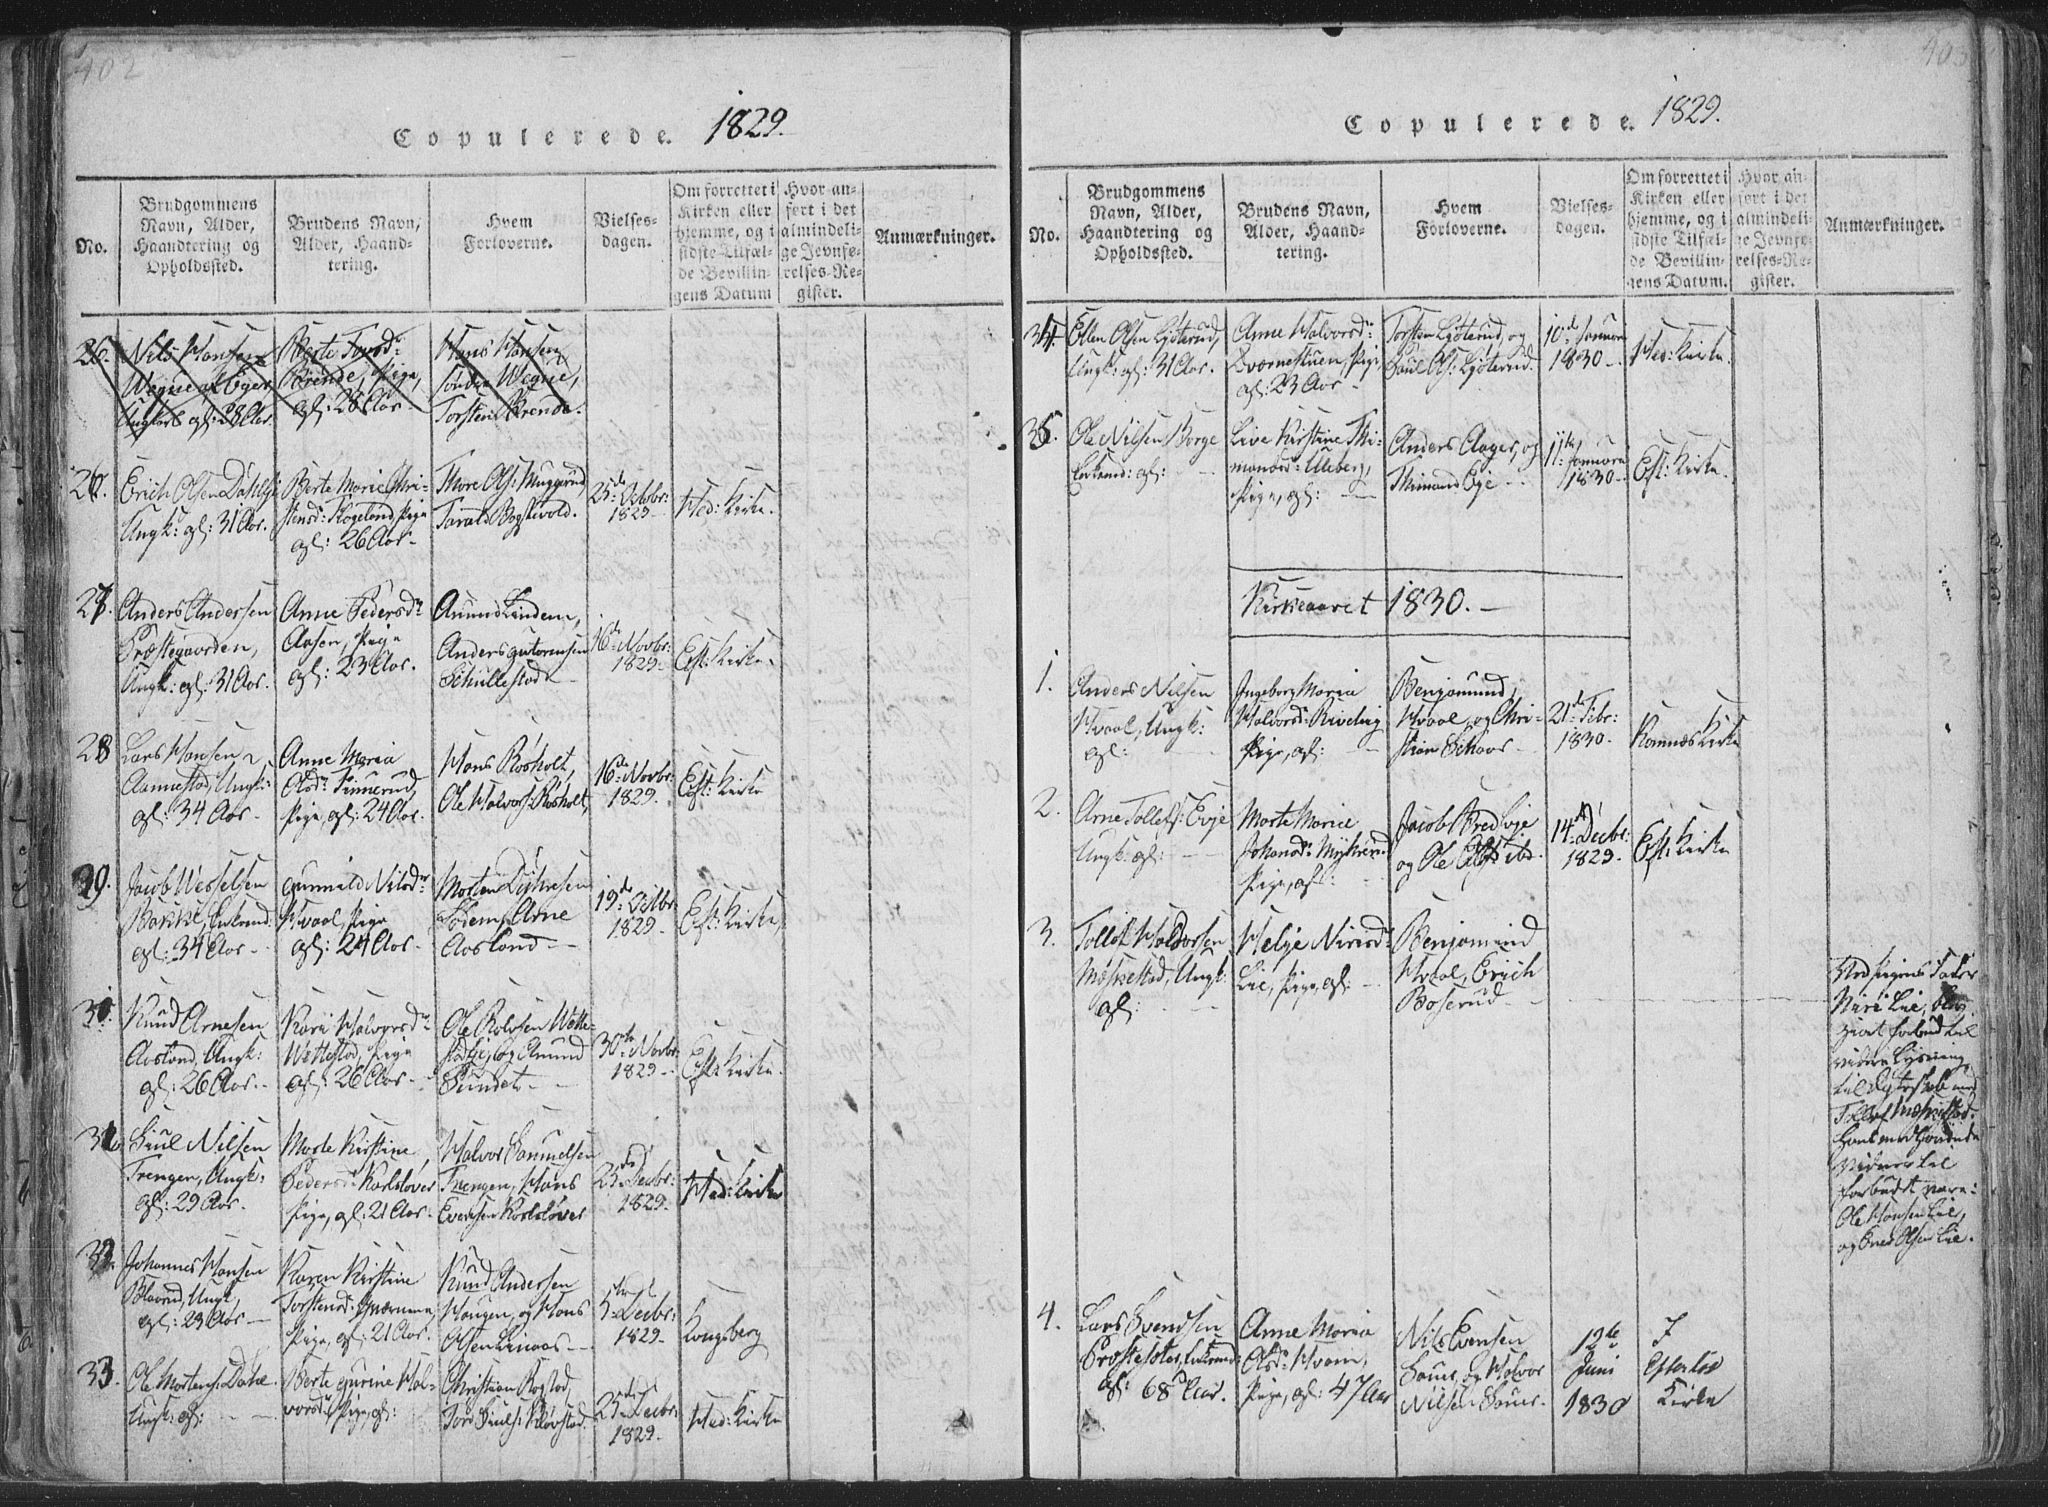 402
Copulerede. 1829.
No.
Brudgommens
Navn, Alder,
Haandtering og
Opholdssted.
Brudens Navn,
Alder, Haand-
tering.
Hvem
Forloverne.
Vielses-
dagen.
Om forrettet i
Kirken eller
hjemme, og i
sidste Tilfæl-
de Bevillin-
gens Datum
Hvor an-
ført i det
almindeli-
ge Jevnfø-
relses-Re-
gister.
Anmærkninger.
Nils Hansen
Wegne af Eger
Ungkarl gl: 28 Aar.
Berte Torsd:
Brende, Pige,
gl: 28 Aar
Hans Hansen
Søndre Wegne,
Torsten Brende.
26.
Erich Olsen
Ungk: gl: 31 Aar.
Berte Marie Chri-
stensd: Skogeland Pige
gl: 26 Aar
Thore Ols: Muggerud,
Tarald Bogstvold.
25de Octbr:
1829
Hed: Kirke.
27.
Anders Andersen
Præstegaarden,
Ungk: gl: 31 Aar.
Anne Pedersd:
Aasen, Pige
gl: 23 Aar.
Amund Lindem,
Anders
Schullestad
16de Novbr:
1829.
Eft: Kirke.
28
Lars Hansen
Ungk:
gl: 34 Aar
Anne Maria
Olsd: Finnerud,
Pige, gl: 24 Aar.
Hans Røsholt,
Ole Halvors: Røsholt,
16de Novbr:
1829.
Eft: Kirke
29.
Jacob Wesselsen
Bakke, Enkemd:
gl: 34 Aar
Gunnild Nilsd:
Hvaal, Pige
gl: 24 Aar
Morten
Arne
Aasland
19de Octbr:
1829
Eft: Kirke,
30.
Knud Arnesen
Aasland, Ungk:
gl: 26 Aar.
Kari Halvorsd:
Wettestad, Pige
gl: 26 Aar.
Ole Rolvsen Wette-
stadeje, og Amund
Sundet
30te Novbr:
1829
Eft: Kirke.
Paul Nilsen
Trengen, Ungk:
gl: 29 Aar.
Marte Kirstine
Pedersd: Karlslover
Pige, gl: 21 Aar.
Halvor Samuelsen
Trengen, Hans
Evensen Karlslover
1829.
Hed: Kirke
Johannes Hansen
Ungk,
gl: 23 Aar
Karen Kirstine
Torstensd:
Pige, gl: 21 Aar.
Knud Andersen
Haugen, og Hans
Olsen
5te Decbr:
1829.
Kongsberg
33.
Ole Mortens: Dahl
Ungk: gl:
Berte Gurine Hal-
vorsd: Pige, gl:
Christian Rogstad,
1829.
Hed: Kirke
Copulerede. 1829.
No.
Brudgommens
Navn, Alder,
Haandtering og
Opholdssted.
Brudens Navn,
Alder, Haand-
tering.
Hvem
Forloverne.
Vielses-
dagen.
Om forrettet i
Kirken eller
hjemme, og i
sidste Tilfæl-
de Bevillin-
gens Datum.
Hvor an-
ført i det
almindeli-
ge Jevnfø-
relses-Re-
gister.
Anmærkninger.
34.
Ellen Olsen Ljøterud,
Ungk: gl: 31 Aar.
Anne Halvorsd:
Dværnestuen, Pige,
gl: 23 Aar
Torsten Ljøterud, og
Paul Ols: Ljøterud.
10de Januari
1830
Hed: Kirke
35.
Ole Nilsen Borge
Enkemd: gl:
Live Kirstine Thi-
mansd: Uleberg,
Pige, gl:
Anders Aager, og
Thimand Eje
11te Januari
1830
Eft: Kirke.
Kirkeaaret 1830.
1.
Anders Nilsen
Hvaal, Ungk:
gl:
Ingeborg Maria
Halvorsd:
Pige, gl:
Benjamund,
Hvaal, og Chri-
stian Skaar
21de Febr:
1830
Komnæs Kirke
2.
Arne Tollefs: Evje
Ungk: gl:
Marte Marie
Johansd:
Pige, gl:
Jacob Bred Evje
og Ole ibd.
14de Decbr:
1829.
Eft: Kirke
3.
Tollef Halvorsen
Ungk:
gl:
Helje Nirisd:
Lie, Pige, gl:
Benjamund
Hvaal, Erich
Boserud
Ved Pigens Fader
Niri Lie, blev
giort Forbud til
videre Lysning
til Egteskab med
Tollef
Vidner til
forbudet vare:
Ole Hansen Lie,
og Olsen Lie.
4.
Lars Svendsen
Enkemd:
gl: 68 Aar.
Anne Maria
Olsd: Hvam,
Pige, gl: 47 Aar
Nils Evensen
Sauer, og Halvor
Nilsen Sauer
12te
Juni
1830
I
Efteløs
Kirke